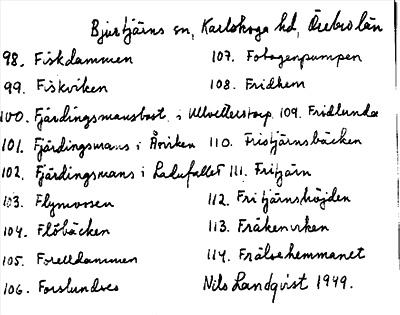 Bjurtjärns sn, Karlskoga hd, Örebro län
98. Fiskdammen 107. Fotogenpumpen
99. Fiskviken 108. Fridhem
100. Fjärdingsmansbost. i Ullvettertorp 109. Fridlunda
101. Fjärdingsmans i Åviken 110. Fristjärnsbäcken
102. Fjärdingsmans i Ladufallet 111. Fritjärn
103. Flymossen 112. Fritjärnshöjden
104. Flöbäcken 113. Fräkenviken
105. Forelldammen 114. Frälsehemmanet
106. Forslundres Nils Landqvist 1949.